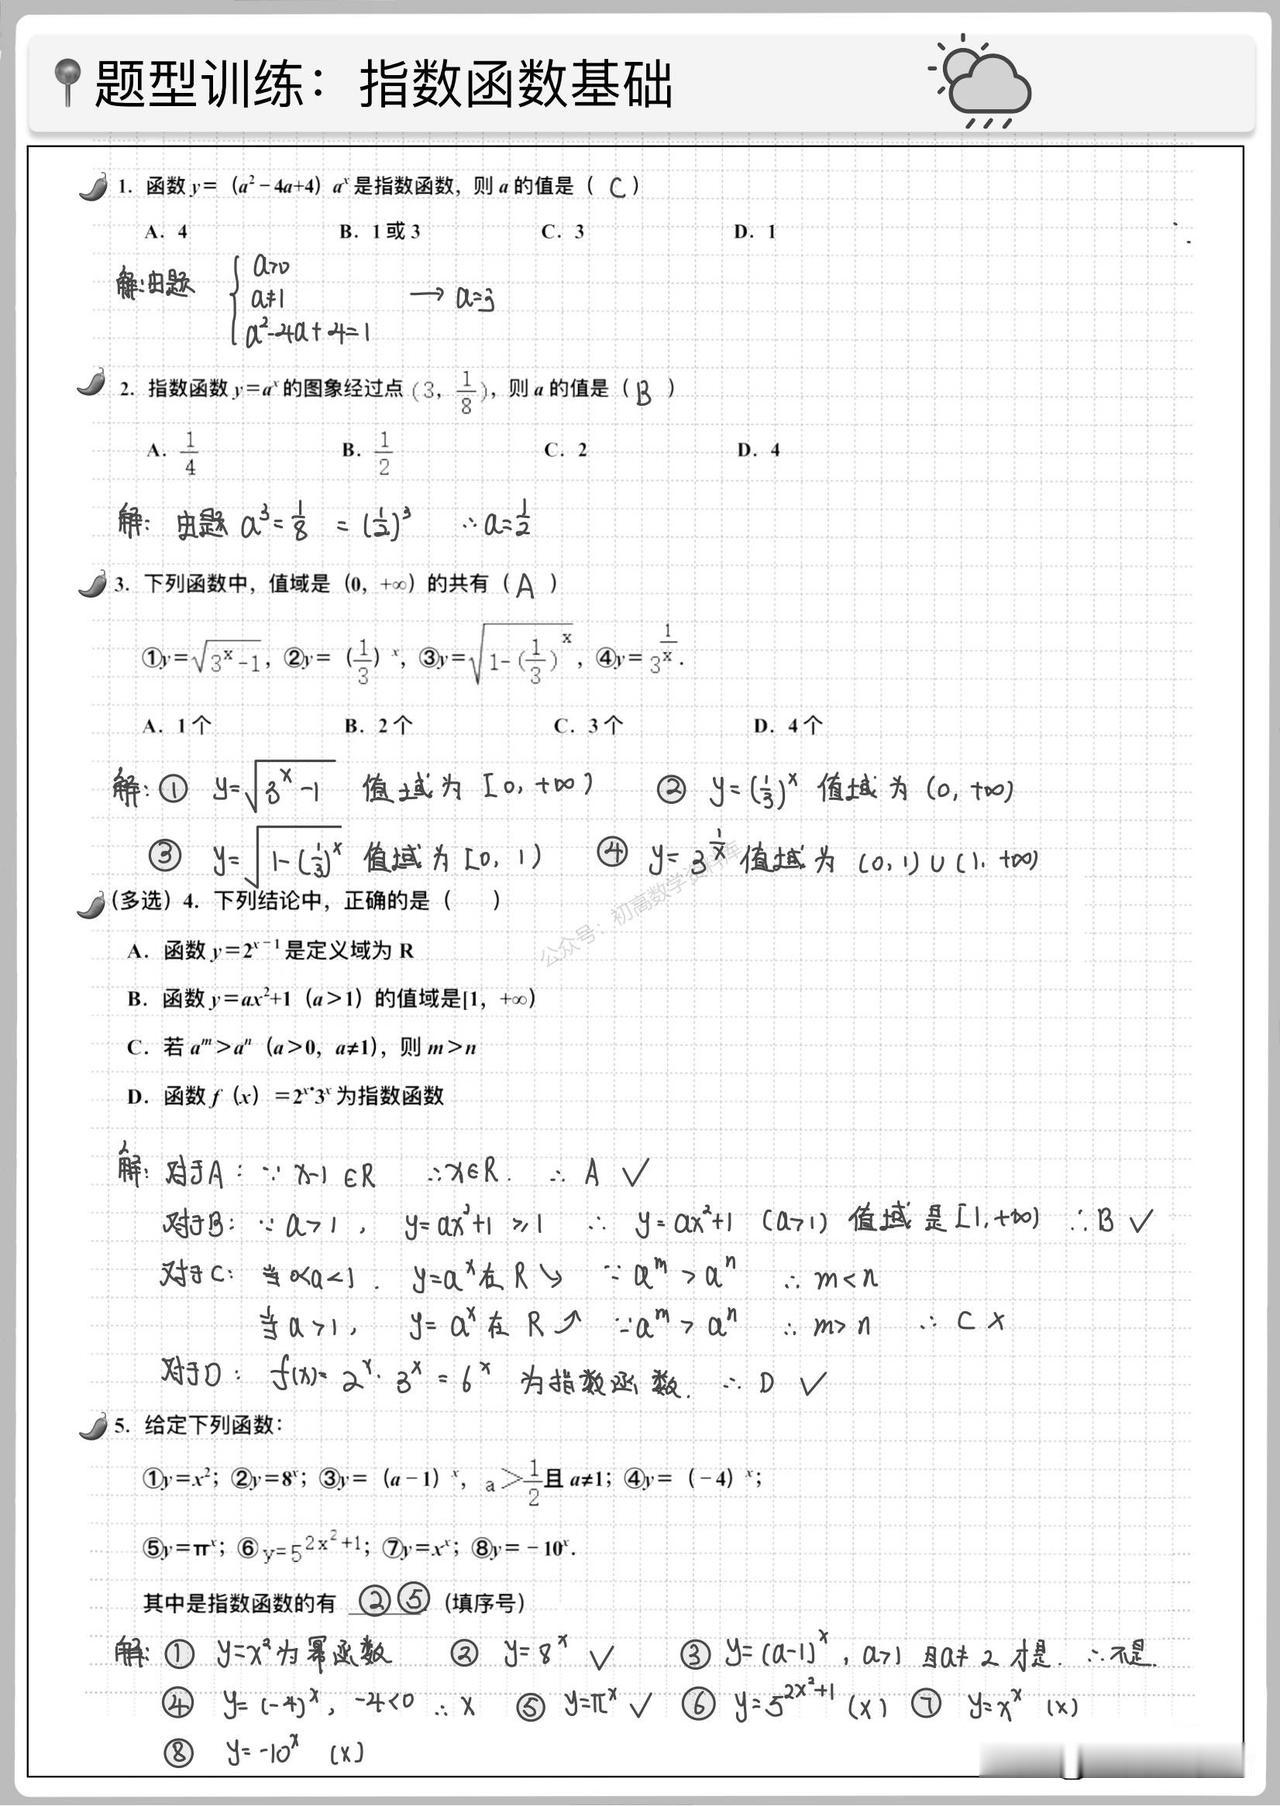 题型训练：指数函数基础
1. 函数 y=（a²－4a+4）aˣ 是指数函数，则 a 的值是（ C ）
A. 4 B. 1 或 3 C. 3 D. 1
解:由题 { a>0
a≠1 → a=3
a²-4a+4=1
2. 指数函数 y=aˣ 的图象经过点 (3, 1/8)，则 a 的值是（ B ）
A. 1/4 B. 1/2 C. 2 D. 4
解: 由题 a³=1/8 = (1/2)³ ∴a=1/2
3. 下列函数中，值域是（0，+∞）的共有（ A ）
①y=√(3ˣ-1)，②y=（1/3）ˣ，③y=√(1-(1/3)ˣ)，④y=3^(1/x).
A. 1 个 B. 2 个 C. 3 个 D. 4 个
解: ① y=√(3ˣ-1) 值域为 [0, +∞) ② y=(1/3)ˣ 值域为 (0, +∞)
③ y=√(1-(1/3)ˣ) 值域为 [0, 1) ④ y=3^(1/x) 值域为 (0,1)∪(1, +∞)
公众号：初高数学资料库
（多选）4. 下列结论中，正确的是（ ）
A. 函数 y=2ˣ⁻¹ 是定义域为 R
B. 函数 y=ax²+1（a＞1）的值域是[1，+∞）
C. 若 aᵐ＞aⁿ（a＞0，a≠1），则 m＞n
D. 函数 f（x）=2ˣ•3ˣ 为指数函数
解: 对于A: ∵ x-1∈R ∴x∈R. ∴ A ✓
对于B: ∵ a>1, y=ax²+1 ≥1 ∴ y=ax²+1 (a>1) 值域是[1,+∞) ∴B ✓
对于C: 当0<a<1. y=aˣ在R↘ ∵aᵐ>aⁿ ∴ m<n
当a>1, y=aˣ在R↗ ∵aᵐ>aⁿ ∴ m>n ∴ C ×
对于D: f(x)=2ˣ·3ˣ=6ˣ 为指数函数. ∴ D ✓
5. 给定下列函数：
①y=x²；②y=8ˣ；③y=（a－1）ˣ，a＞1/2且 a≠1；④y=（－4）ˣ；
⑤y=πˣ；⑥y=5^(2x²+1)；⑦y=xˣ；⑧y=－10ˣ.
其中是指数函数的有 ②⑤（填序号）
解: ① y=x²为幂函数 ② y=8ˣ ✓ ③ y=(a-1)ˣ, a>1且a≠2才是. ∴不是.
④ y=(-4)ˣ, -4<0 ∴ × ⑤ y=πˣ ✓ ⑥ y=5^(2x²+1) (×) ⑦ y=xˣ (×)
⑧ y=-10ˣ (×)